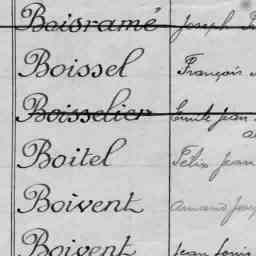 Boisramé Joseph
Boissel François
Boisselier Emile Jean
Boitel Félix Jean
Boivent Amand
Boivent Jean Louis